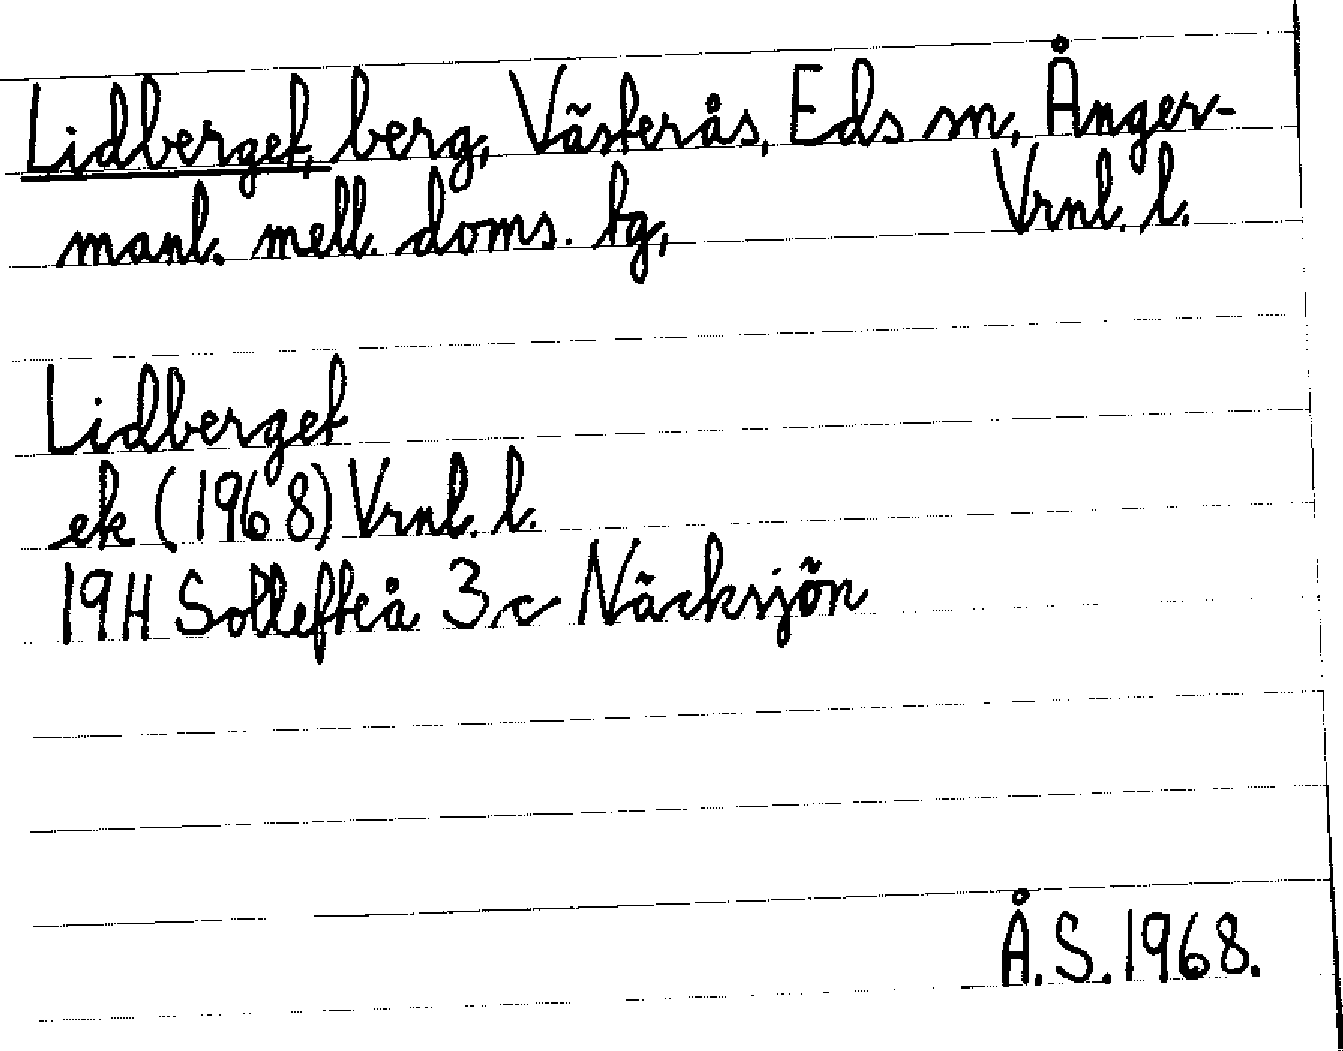 Lidberget, berg, Västerås, Eds sn, Ånger-
manl. mell. doms. tg, Vrnl. l.
Lidberget
ek (1968) Vrnl. l.
19H Sollefteå 3c Näcksjön
Å.S. 1968.